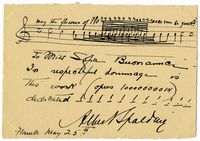 may the flowers of the
To Miss Buonamici
In respectful hommage
this work (opus 10000000014)
dedicated
Albert Spalding
May 25th